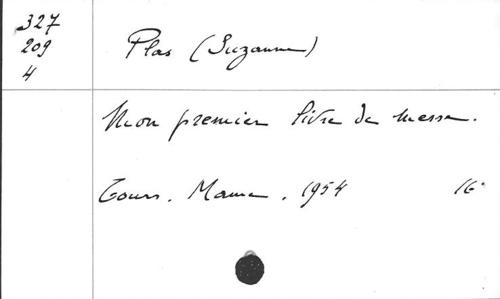 327
209
4
Plas (Suzanne)
Mon premier livre de messe.
Tours. Mame. 1954 16°